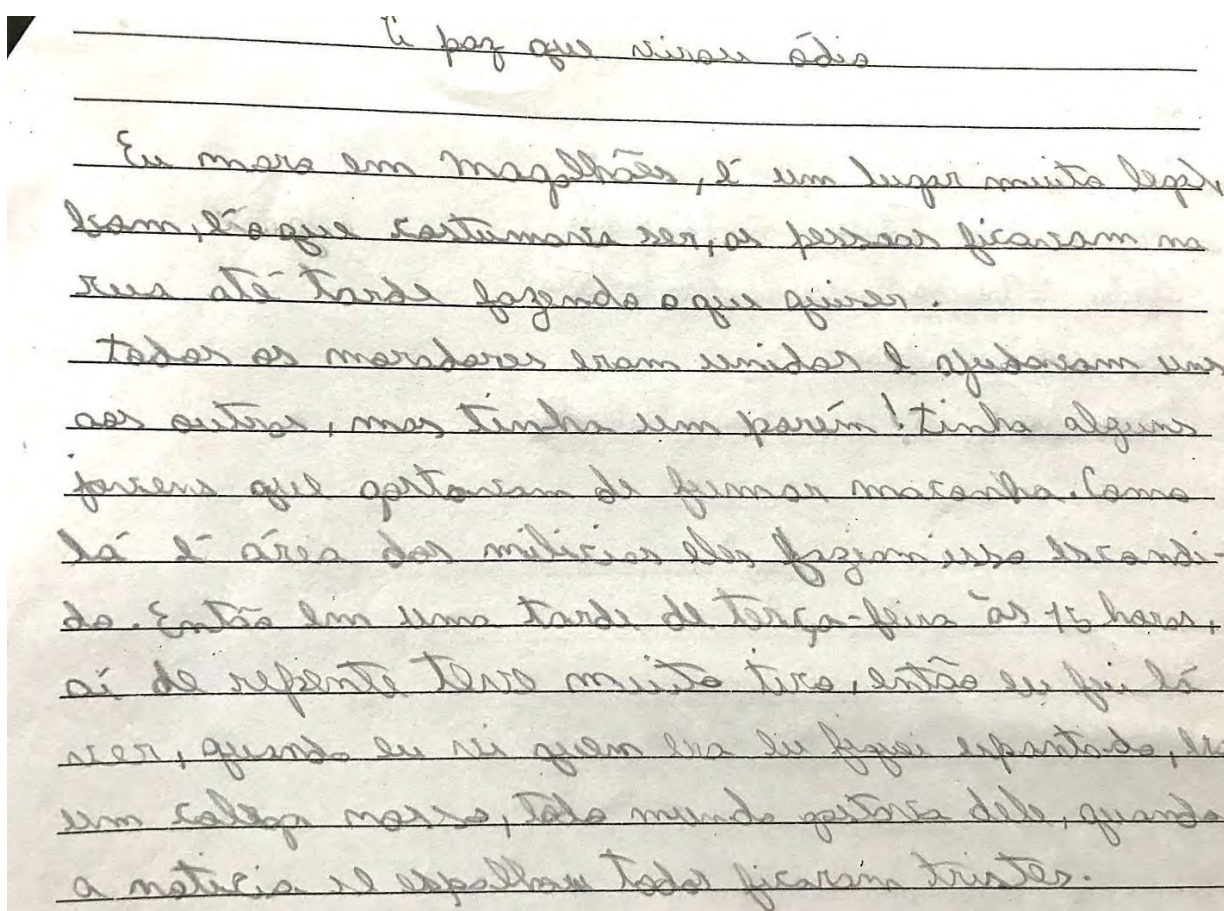 A paz que virou ódio
Eu moro em Magalhães, é um lugar muito legal,
bom, é o que costumava ser, as pessoas ficavam na
rua até tarde fazendo o que quiser.
todos os moradores eram unidos e ajudavam uns
aos outros, mas tinha um porém! tinha alguns
jovens que gostavam de fumar maconha. Como
lá é área dos eles faziam isso escondi-
do. Então em uma tarde de terça-feira às horas,
aí de repente teve muito tiro, então eu fui lá
ver, quando eu vi quem era eu fiquei espantado,
um colega nosso, todo mundo gostava dele, quando
a noticia se espalhou todos ficaram tristes.